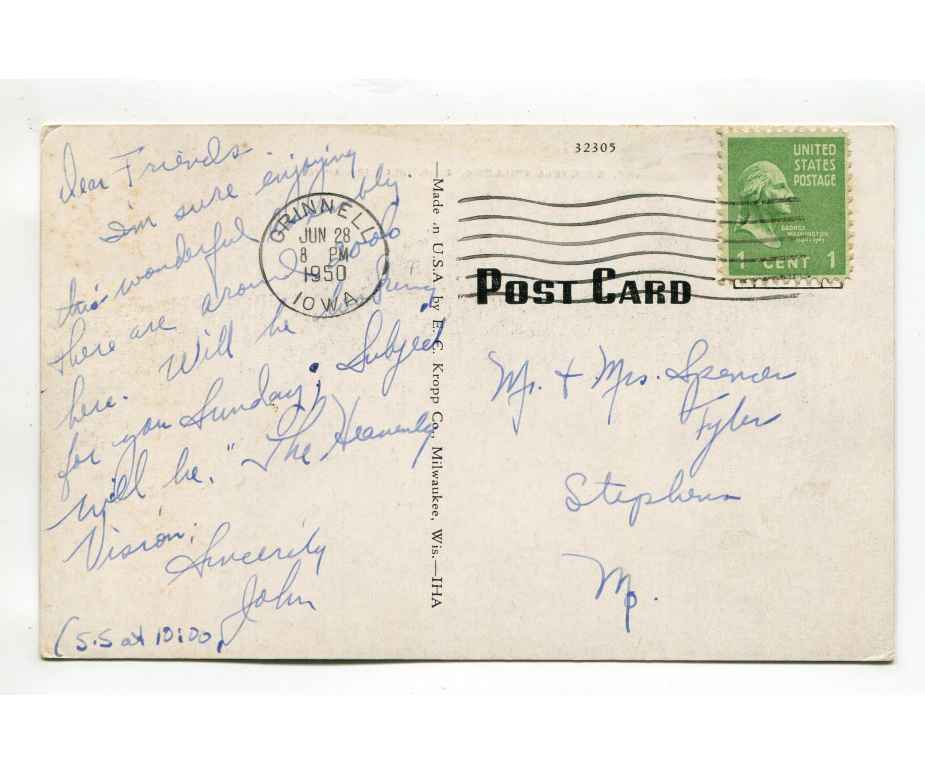 Dear Friends
I'm sure enjoying
this wonderful
there are around 2000
here. Will be
for you Sunday. Subject
will be, "The Heavenly
Vision.
Sincerily
John
(S.S at 10:00)
GRINNELL
JUN 28
8 PM
1950
IOWA
—Made in U.S.A. by E. C. Kropp Co., Milwaukee, Wis.—IHA
32305
UNITED
STATES
POSTAGE
GEORGE
WASHINGTON
1 CENT 1
POST CARD
Mr. + Mrs. Spencer
Tyler
Stephens
Mo.